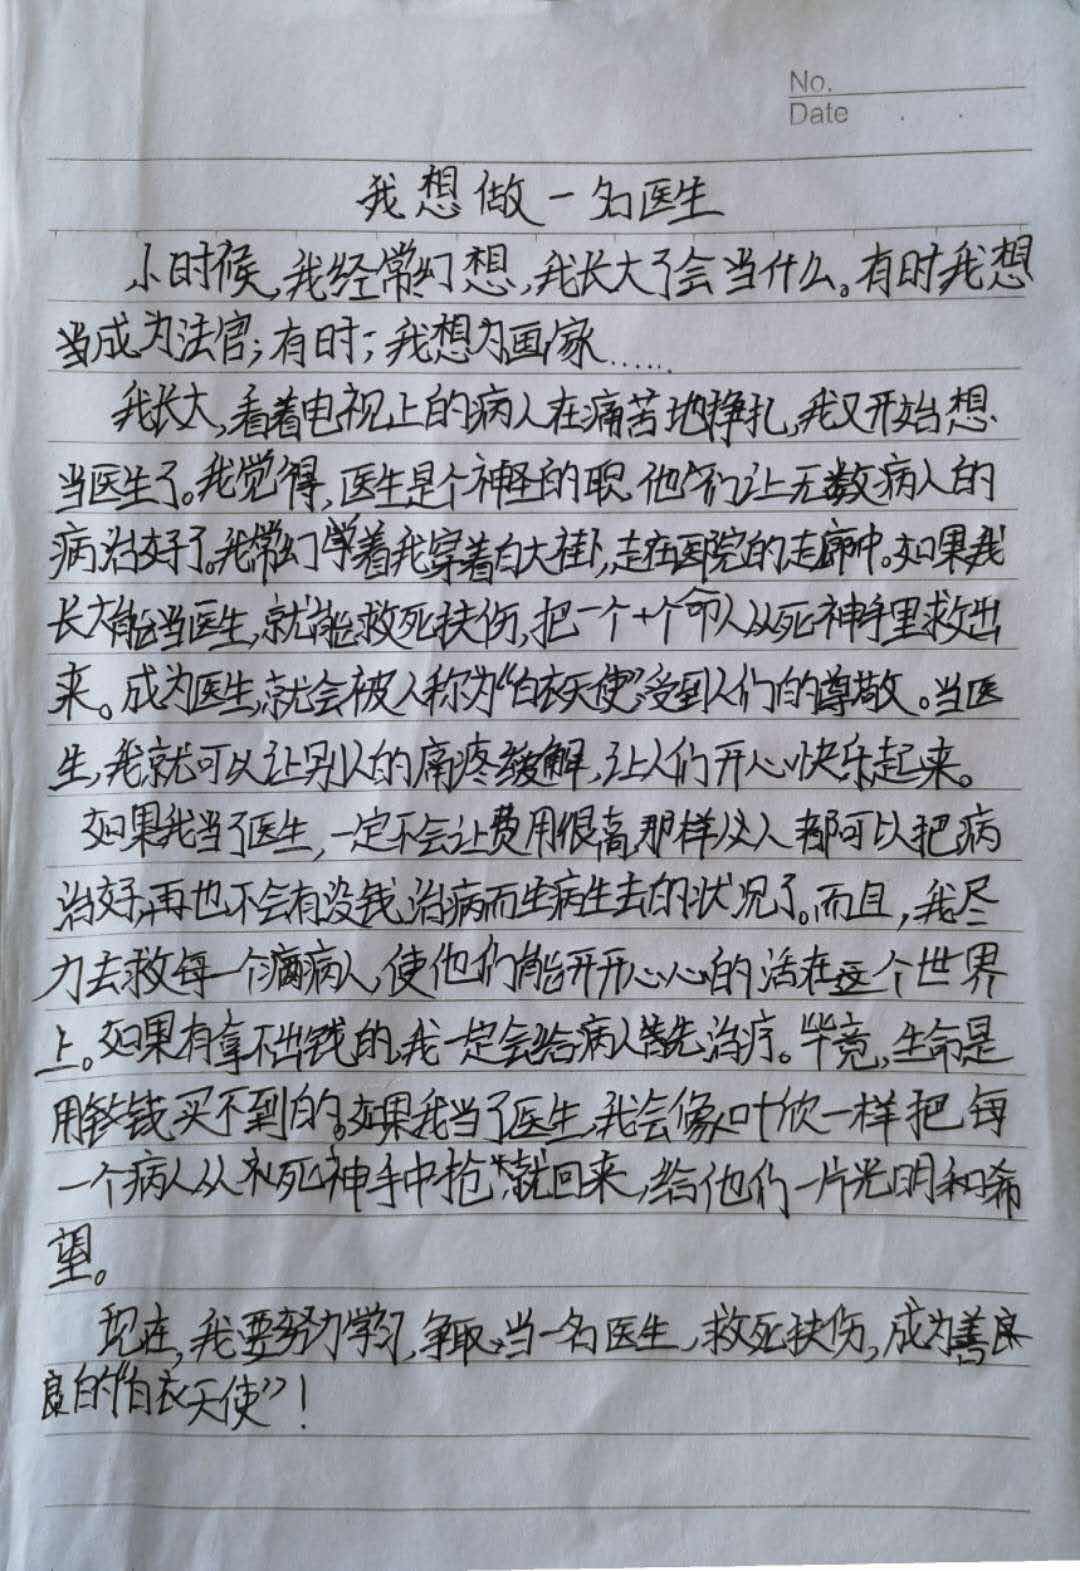 No.
Date
我想做一名医生
小时候,我经常幻想,我长大了会当什么。有时我想
当成为法官;有时;我想为画家……
我长大,看着电视上的病人在痛苦地挣扎,我又开始想
当医生了。我觉得,医生是个神圣的职 他们让无数病人的
病治好了。我常幻 着我穿着白大褂,走在医院的走廊中。如果我
长大能当医生,就能救死扶伤,把一个个命人从死神手里救出
来。成为医生,就会被人称为“白衣天使”,受到人们的尊敬。当医
生,我就可以让别人的痛疼缓解,让人们开心快乐起来。
如果我当了医生,一定不会让费用很高,那样 人都可以把病
治好,再也不会有没钱治病而生病生去的状况了。而且,我尽
力去救每一个病人,使他们能开开心心的活在这个世界
上。如果有拿不出钱的,我一定会给病人 先治疗。毕竟,生命是
用金钱买不到的。如果我当了医生,我会像叶欣一样把每
一个病人从死神手中抢 就回来,给他们一片光明和希
望。
现在,我要努力学习,争取当一名医生,救死扶伤,成为善良
良的“白衣天使”!